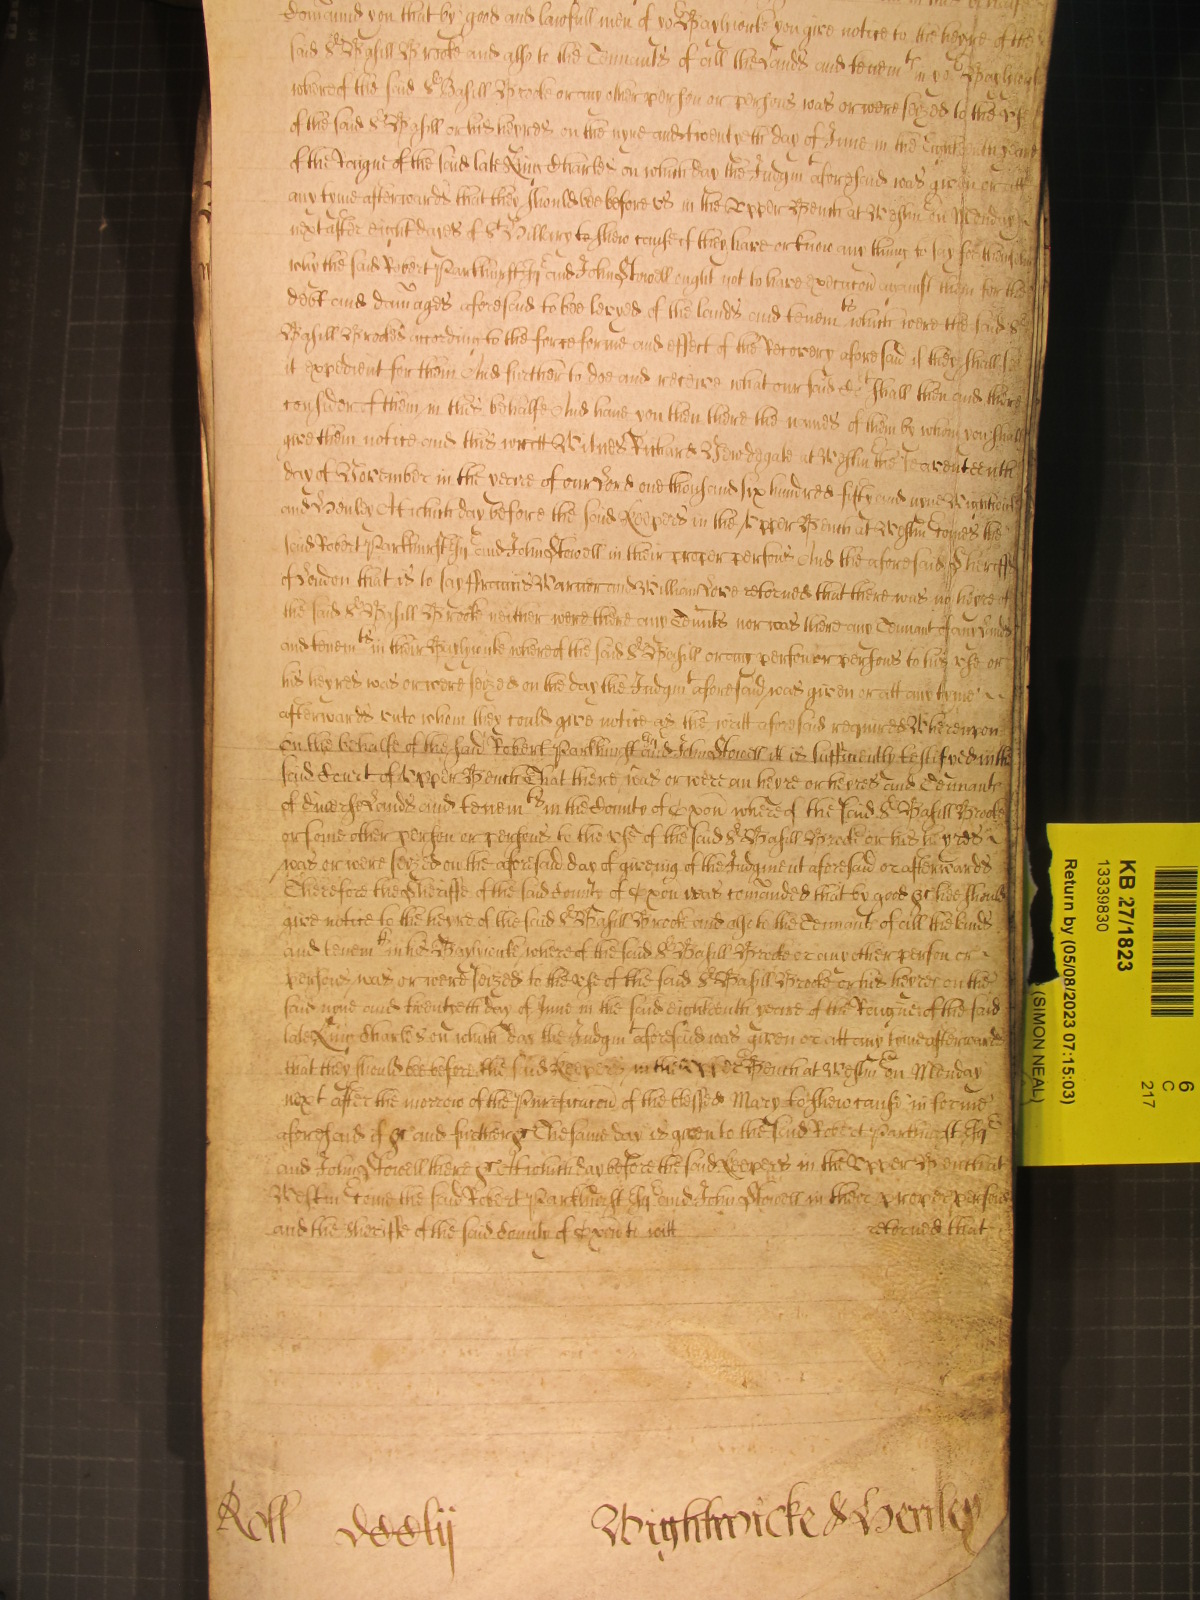 Comaund you that by good and lawfull men of yor Baylywicke you give notice to the heyre of the
said Sr Basill Brooke and also to the Tennants of all the Lands and tenemts in yor Baylywicke
whereof the said Sr Basill Brooke or any other person or persons was or were seized to the vse
of the said Sr Basill or his heyres on the nyne and twentyeth day of June in the Eighteenth yeare
of the Raigne of the said late King Charles on which day the Judgmt aforesaid was given or att
any tyme afterwards that they should bee before vs in the Vpper Bench at Westm on Monday
next after eight dayes of St Hillary to shew cause if they have or know any thing to say for themselves
why the said Robert Parkhurst Esqr and John Stowell ought not to have execucon against them for the
debt and damages aforesaid to bee levyed of the lands and tenemts which were the said Sr
Basill Brookes according to the force forme and effect of the Recovery aforesaid if they shall see
it expedient for them And further to doe and receive what our said Cort shall then and there
consider of them in this behalfe And have you then there the names of them by whom you shall
give them notice and this writt Witnes Richard Newdegate at Westm the seaventeenth
day of November in the yeare of our Lord one thousand six hundred fifty and nyne Wightwicke
and Henley At which day before the said Keepers in the Vpper Bench at Westm comes the
said Robert Parkhurst Esqr and John Stowell in their proper persons And the aforesaid Sheriffe
of London that is to say Francis Warner and William Love retorned that there was no heyre of
the said Sr Basill Brooke neither were there any Tennts nor was there any Tennant of any Lands
and tenemts in their Baylywicke whereof the said Sr Basill or any person or persons to his vse or
his heyres was or were seized on the day the Judgmt aforesaid was given or att any tyme
afterwards vnto whom they could give notice as the writt aforesaid required Whereupon
on the behalfe of the said Robert Parkhurst Esqr and John Stowell it is sufficiently testifyed in the
said Court of Vpper Bench That there was or were an heyre or heyres and Tennants
of diverse Lands and tenemts in the County of Oxon whereof the said Sr Basill Brooke
or some other person or persons to the vse of the said Sr Basill Brooke or his heyres
was or were seized on the aforesaid day of giveing of the Judgment aforesaid or afterwards
Therefore the Sheriffe of the said County of Oxon was comanded that by good &c hee should
give notice to the heyre of the said Sr Basill Brooke and also to the Tennants of all the lands
and tenemts in his Baylywicke where of the said Sr Basill Brooke or any other person or
persons was or were seized to the vse of the said Sr Basill Brooke or his heyres on the
said nyne and twentyeth day of June in the said eighteenth yeare of the Raigne of the said
late King Charles on which day the Judgmt aforesaid was given or att any tyme afterwards
that they should bee before the said Keepers in the Vpper Bench at Westm on Monday
next after the morrow of the Purificacon of the blessed Mary to shew cause in forme
aforesaid if &c and further &c The same day is given to the said Robert Parkhurst Esqr
and John Stowell there &c At which day before the said Keepers in the Vpper Bench at
Westm come the said Robert Parkhurst Esqr and John Stowell in their proper persons
and the Sheriffe of the said County of Oxon to witt retorned that
Roll dccclij Wightwicke & Henley
KB 27/1823
13339830
Return by (05/08/2023 07:15:03)
(SIMON NEAL)
6
C
217